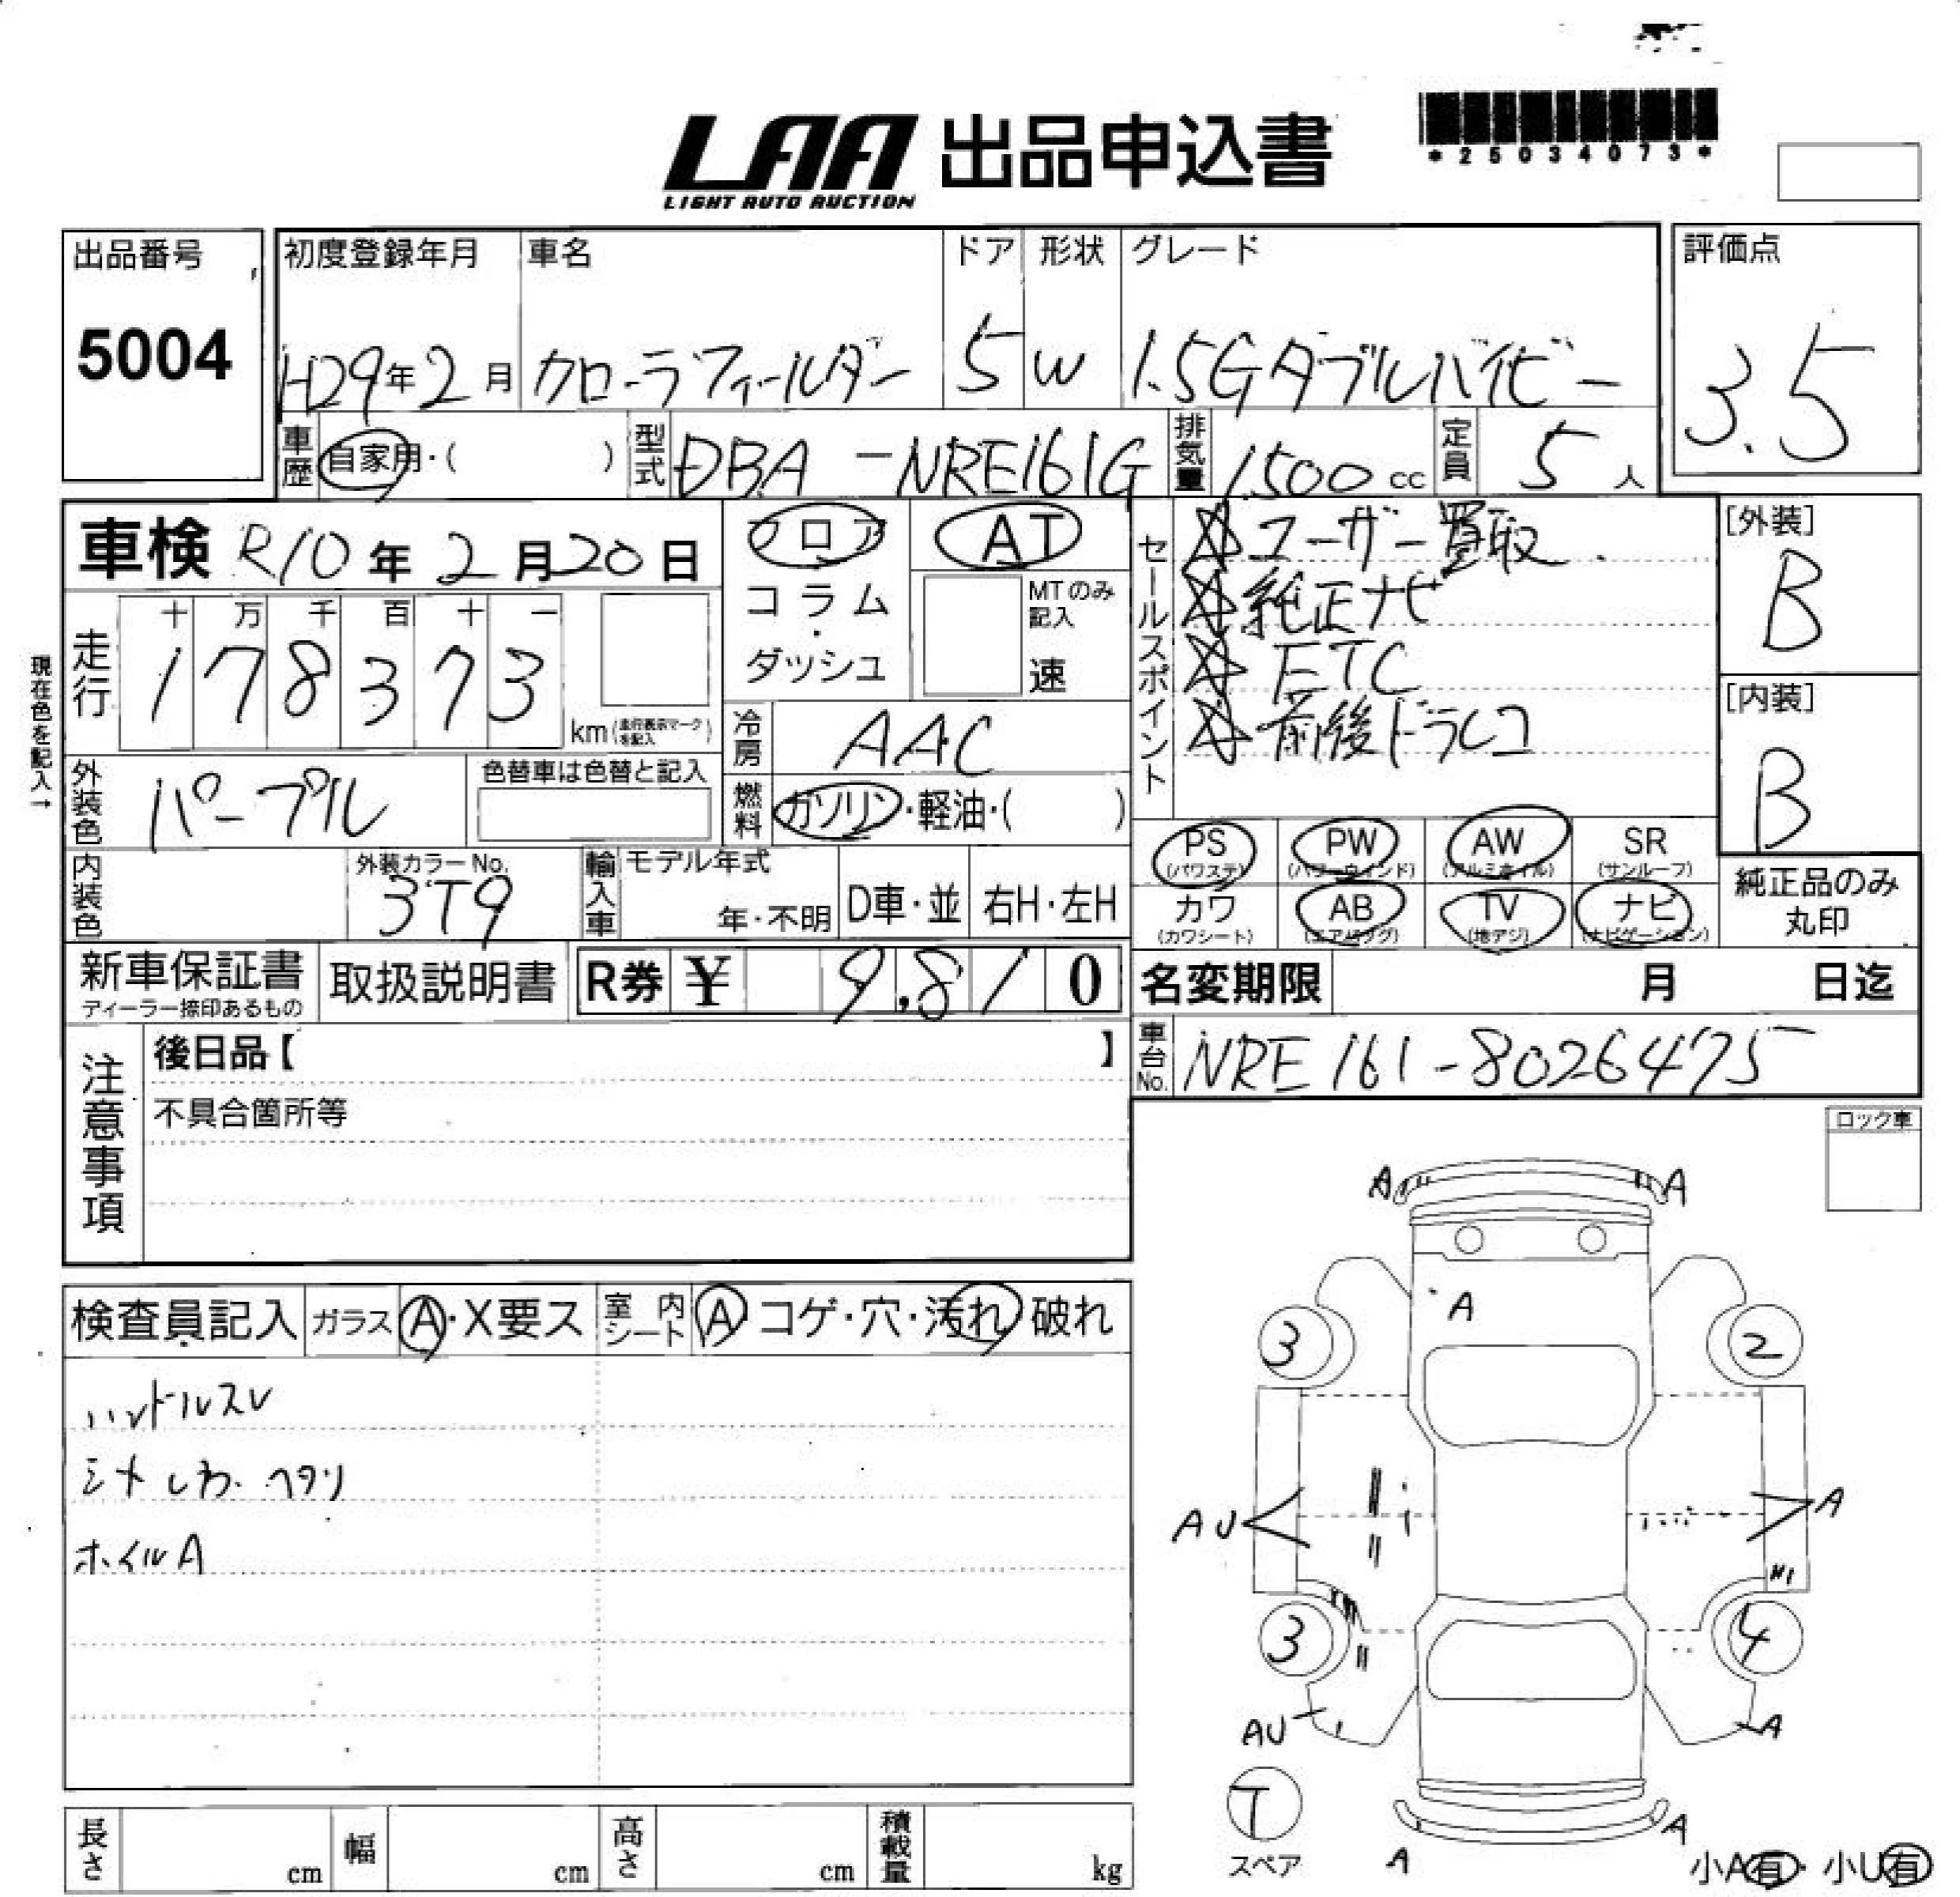 LAA 出品申込書
LIGHT AUTO AUCTION
*25034073*
出品番号
5004
初度登録年月 車名 ドア 形状 グレード
H29年2月 カローラフィールダー 5 W 1.5Gダブルバイビー
評価点
3.5
車歴 自家用・( ) 型式 DBA-NRE161G 排気量 1500cc 定員 5人
車検 R10年2月20日
フロア
コラム
・
ダッシュ
AT
MTのみ記入
速
セールスポイント
☆ユーザー買取.
☆純正ナビ
☆ETC
☆前後ドラレコ
[外装]
B
[内装]
B
現在色を記入→
走行
十 万 千 百 十 一
1 7 8 3 7 3
km(走行表示マークを記入)
冷房 AAC
燃料 ガソリン・軽油・( )
外装色 パープル
色替車は色替と記入
内装色
外装カラーNo.
3T9
輸入車 モデル年式
年・不明 D車・並 右H・左H
PS (パワステ) PW (パワーウィンド) AW (アルミホイル) SR (サンルーフ)
カワ (カワシート) AB (エアバッグ) TV (地デジ) ナビ (ナビゲーション)
純正品のみ
丸印
新車保証書
ディーラー捺印あるもの
取扱説明書
R券 ¥ 9,810
名変期限 月 日迄
車台No. NRE161-8026475
注意事項
後日品【 】
不具合箇所等
ロック車
検査員記入 ガラス A・X要ス 室内シート A コゲ・穴・汚れ 破れ
ハンドルスレ
シートしわ・ヘタリ
ホイルA
A A
A
3 2
AU A
3 4
AU A
T
スペア
A A
小A有・小U有
長さ cm 幅 cm 高さ cm 積載量 kg